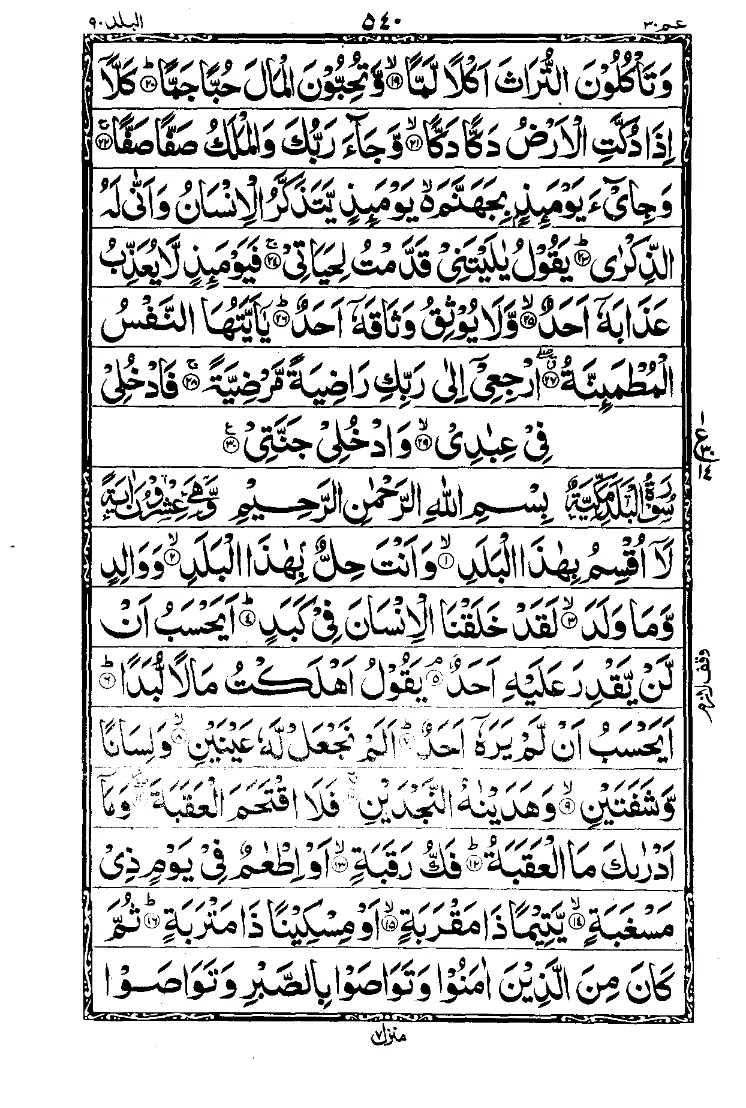 عم ٣٠ ٥٤٠ البلد ٩٠
وَتَاْكُلُوْنَ التُّرَاثَ اَكْلًا لَّمًّا ۙ﴿۱۹﴾ وَّتُحِبُّوْنَ الْمَالَ حُبًّا جَمًّا ؕ﴿۲۰﴾ كَلَّاۤ
اِذَا دُكَّتِ الْاَرْضُ دَكًّا دَكًّا ۙ﴿۲۱﴾ وَّجَآءَ رَبُّكَ وَالْمَلَكُ صَفًّا صَفًّا ۚ﴿۲۲﴾
وَجِایْٓءَ يَوْمَئِذٍۭ بِجَهَنَّمَ ۙ۬ يَوْمَئِذٍ يَّتَذَكَّرُ الْاِنْسَانُ وَاَنّٰى لَهُ
الذِّكْرٰى ؕ﴿۲۳﴾ يَقُوْلُ يٰلَيْتَنِيْ قَدَّمْتُ لِحَيَاتِيْ ۚ﴿۲۴﴾ فَيَوْمَئِذٍ لَّا يُعَذِّبُ
عَذَابَهٗۤ اَحَدٌ ۙ﴿۲۵﴾ وَّلَا يُوْثِقُ وَثَاقَهٗۤ اَحَدٌ ؕ﴿۲۶﴾ يٰۤاَيَّتُهَا النَّفْسُ
الْمُطْمَئِنَّةُ ﴿۲۷﴾ ارْجِعِيْۤ اِلٰى رَبِّكِ رَاضِيَةً مَّرْضِيَّةً ۚ﴿۲۸﴾ فَادْخُلِيْ
فِيْ عِبٰدِيْ ۙ﴿۲۹﴾ وَادْخُلِيْ جَنَّتِيْ ﴿۳۰﴾ ع
سُوْرَةُ الْبَلَدِ مَكِّيَّةٌ بِسْمِ اللّٰهِ الرَّحْمٰنِ الرَّحِيْمِ وَّهِيَ عِشْرُوْنَ اٰيَةً
لَاۤ اُقْسِمُ بِهٰذَا الْبَلَدِ ۙ﴿۱﴾ وَاَنْتَ حِلٌّۢ بِهٰذَا الْبَلَدِ ۙ﴿۲﴾ وَوَالِدٍ
وَّمَا وَلَدَ ۙ﴿۳﴾ لَقَدْ خَلَقْنَا الْاِنْسَانَ فِيْ كَبَدٍ ؕ﴿۴﴾ اَيَحْسَبُ اَنْ
لَّنْ يَّقْدِرَ عَلَيْهِ اَحَدٌ ۘ﴿۵﴾ يَقُوْلُ اَهْلَكْتُ مَالًا لُّبَدًا ؕ﴿۶﴾
وقف لازم
اَيَحْسَبُ اَنْ لَّمْ يَرَهٗۤ اَحَدٌ ؕ﴿۷﴾ اَلَمْ نَجْعَلْ لَّهٗ عَيْنَيْنِ ۙ﴿۸﴾ وَلِسَانًا
وَّشَفَتَيْنِ ۙ﴿۹﴾ وَهَدَيْنٰهُ النَّجْدَيْنِ ۚ﴿۱۰﴾ فَلَا اقْتَحَمَ الْعَقَبَةَ ﴿۱۱﴾ وَمَاۤ
اَدْرٰىكَ مَا الْعَقَبَةُ ؕ﴿۱۲﴾ فَكُّ رَقَبَةٍ ۙ﴿۱۳﴾ اَوْ اِطْعٰمٌ فِيْ يَوْمٍ ذِيْ
مَسْغَبَةٍ ۙ﴿۱۴﴾ يَّتِيْمًا ذَا مَقْرَبَةٍ ۙ﴿۱۵﴾ اَوْ مِسْكِيْنًا ذَا مَتْرَبَةٍ ؕ﴿۱۶﴾ ثُمَّ
كَانَ مِنَ الَّذِيْنَ اٰمَنُوْا وَتَوَاصَوْا بِالصَّبْرِ وَتَوَاصَوْا
منزل ٧